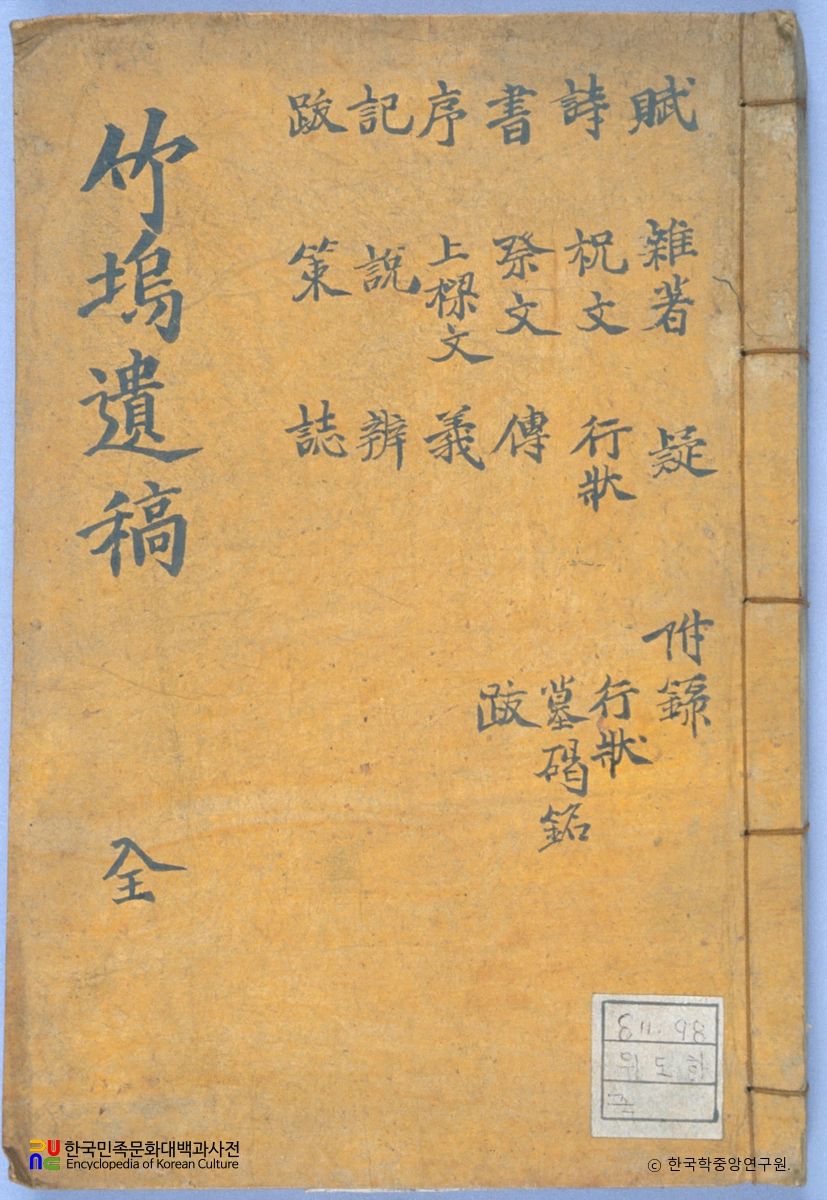 賦
詩
書
序
記
跋
雜著
祝文
祭文
上樑文
說
策
疑
行狀
傳
義
辨
誌
附錄
行狀
墓碣銘
跋
竹塢遺稿
全
811.98
위도하
한국민족문화대백과사전
Encyclopedia of Korean Culture
© 한국학중앙연구원.